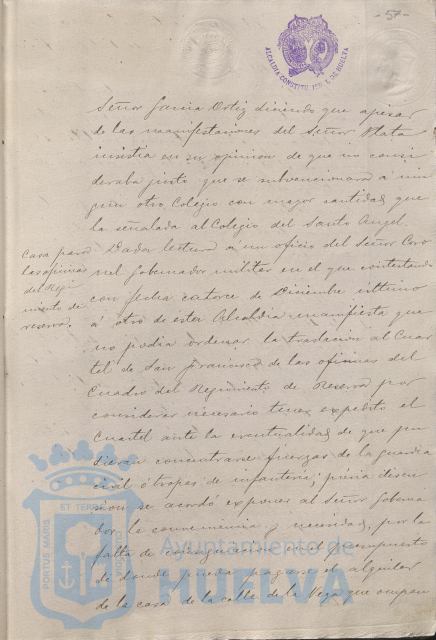 - 57 -
ALCALDIA CONSTITUCIONAL DE HUELVA
Señor García Ortiz diciendo que apesar
de las manifestaciones del Señor Plata
insistia en su opinion de que no consi
deraba justo que se subvencionara á nin
gun otro Colegio con mayor cantidad que
la señalada al Colegio del Santo Angel.
Casa para
las oficinas
del Regi
miento de
reserva.
Dada lectura á un oficio del Señor Coro
nel Gobernador militar en el que contestando
con fecha catorce de Diciembre ultimo
á otro de esta Alcaldia manifiesta que
no podia ordenar la traslacion al Cuar
tel de San Francisco de las oficinas del
Cuadro del Regimiento de Reserva por
considerar necesario tener expedito el
Cuartel ante la eventualidad de que pu
dieran concentrarse fuerzas de la guardia
civil ó tropas de infanteria; prévia discu
sion se acordó exponer al Señor Goberna
dor la conveniencia y necesidad, por la
falta de consignacion en el presupuesto
de donde pueda pagarse el alquiler
de la casa de la calle de la Vega que ocupan
PORTUS MARIS ET TERRAE CUSTODIA
Ayuntamiento de
HUELVA